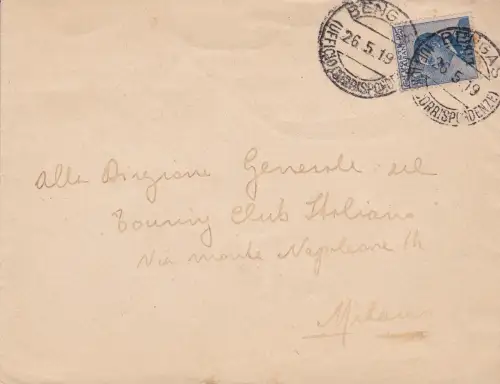 BENGASI
UFFICIO CORRISPONDENZE
26.5.19
BENGASI
CORRISPONDENZE
26.5.19
Alla Direzione Generale del
Touring Club Italiano
Via monte Napoleone 14
Milano